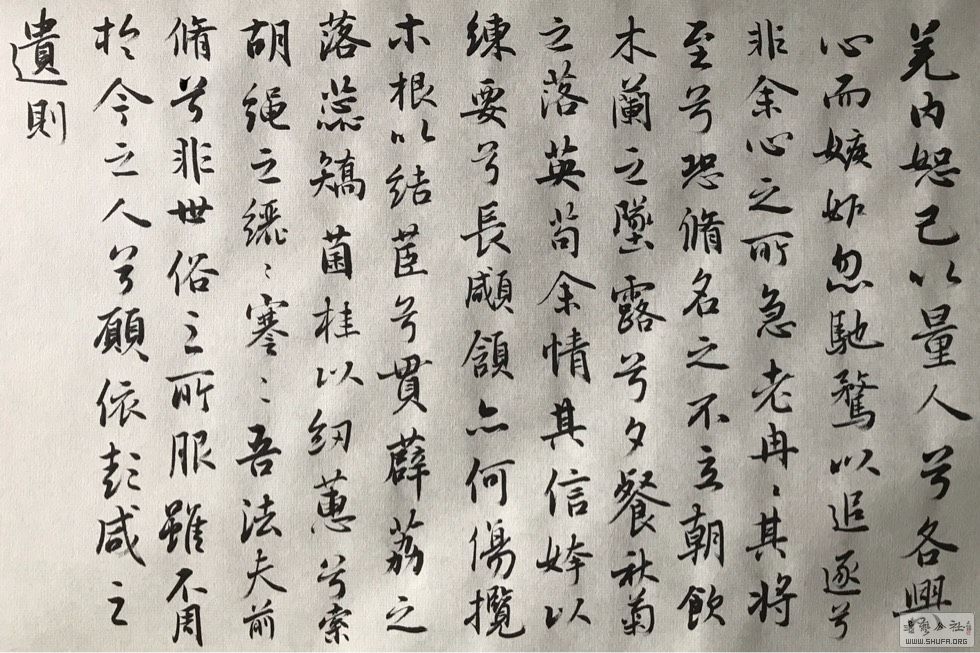 羌内恕己以量人兮各興
心而嫉妒忽馳騖以追逐兮
非余心之所急老冉〻其將
至兮恐脩名之不立朝飲
木蘭之墜露兮夕餐秋菊
之落英苟余情其信姱以
練要兮長顑頷亦何傷攬
木根以結茝兮貫薜荔之
落蕊矯菌桂以紉蕙兮索
胡繩之纚〻謇〻吾法夫前
脩兮非世俗之所服雖不周
於今之人兮願依彭咸之
遺則
WWW.SHUFA.ORG